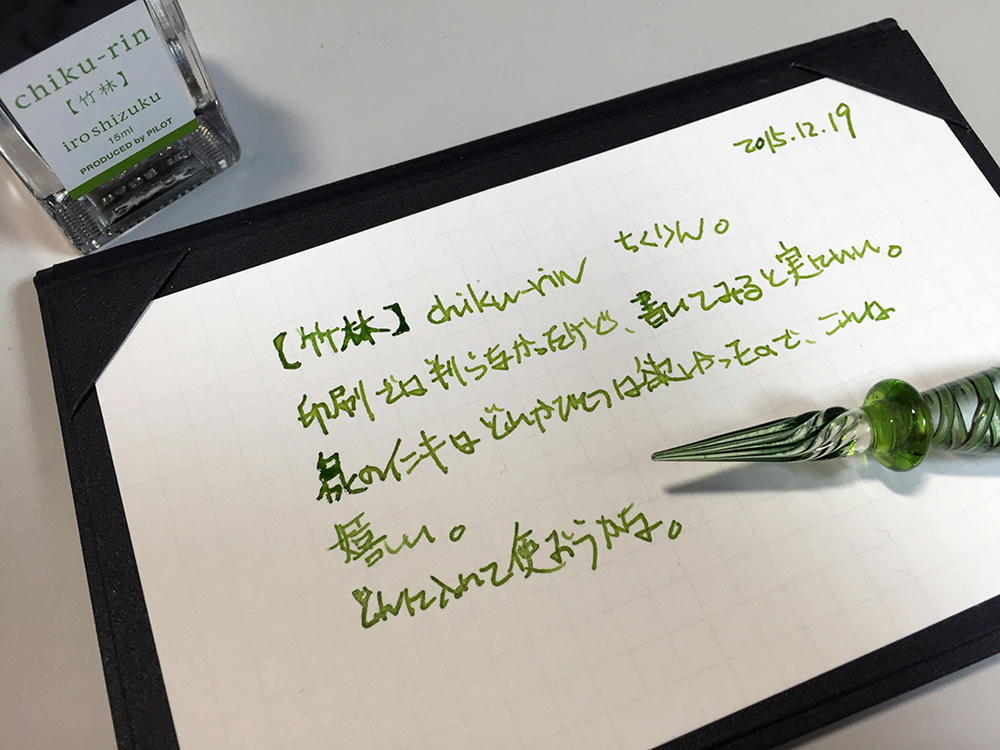 chiku-rin
【竹林】
iroshizuku
15ml
PRODUCED by PILOT
2015.12.19
【竹林】 chiku-rin ちくりん。
印刷では判らなかったけど、書いてみると実にいい。
緑のインキはどれかひとつは欲しかったので、これは
嬉しい。
どれに入れて使おうかな。